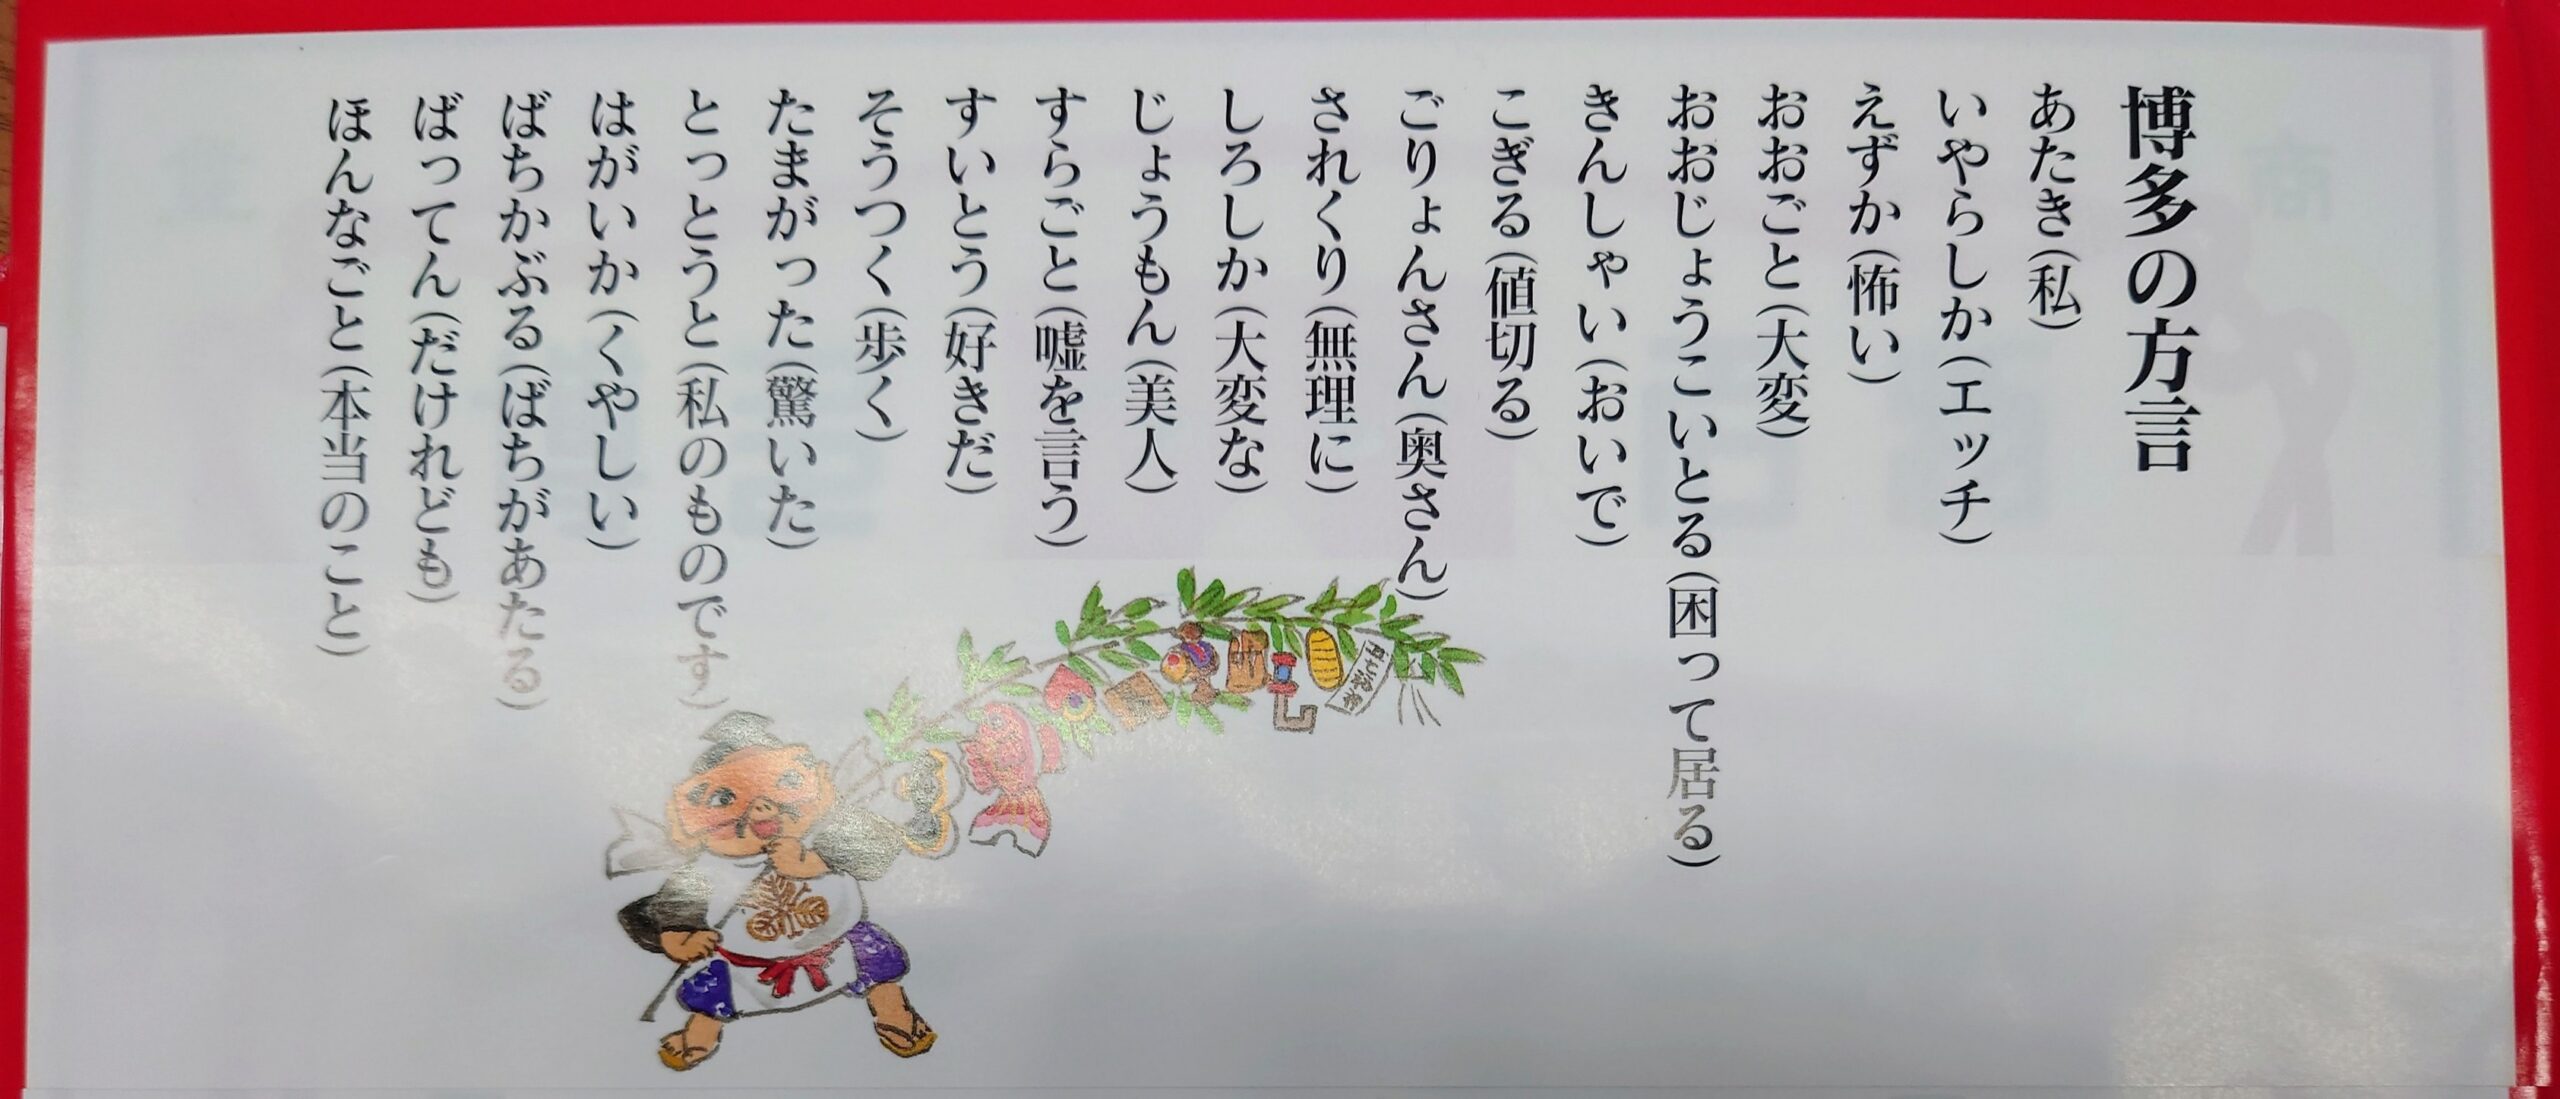 博多の方言
あたき(私)
いやらしか(エッチ)
えずか(怖い)
おおごと(大変)
おおじょうこいとる(困って居る)
きんしゃい(おいで)
こぎる(値切る)
ごりょんさん(奥さん)
されくり(無理に)
しろしか(大変な)
じょうもん(美人)
すらごと(嘘を言う)
すいとう(好きだ)
そうつく(歩く)
たまがった(驚いた)
とっとうと(私のものです)
はがいか(くやしい)
ばちかぶる(ばちがあたる)
ばってん(だけれども)
ほんなごと(本当のこと)